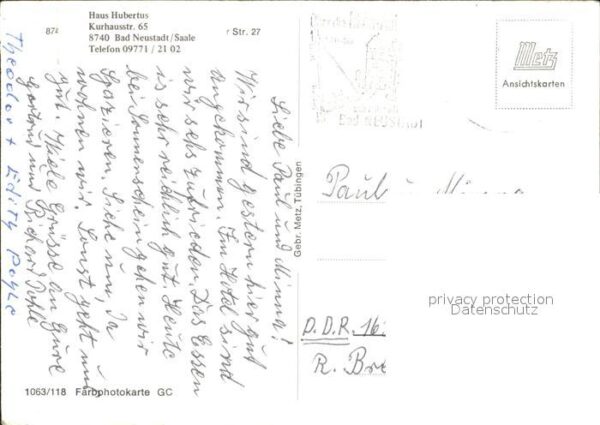 Haus Hubertus
Kurhausstr. 65
8740 Bad Neustadt/Saale
Telefon 09771 / 21 02
872
r Str. 27
Liebe Paul und Minna!
Wir sind gestern hier gut
angekommen. Im Hotel sind
wir sehr zufrieden. Das Essen
is sehr reichlich gut. Heute
bei Sonnenschein gehen wir
spazieren. Siehe nun, Da
wohnen wir. Sonst geht uns
gut. Viele Grüsse an Eure
und Richard
Theodor + Edith
Gebr. Metz, Tübingen
1063/118 Farbphotokarte GC
Metz
Ansichtskarten
Paul u. Minna
privacy protection
Datenschutz
D.D.R. 16
R. Bre